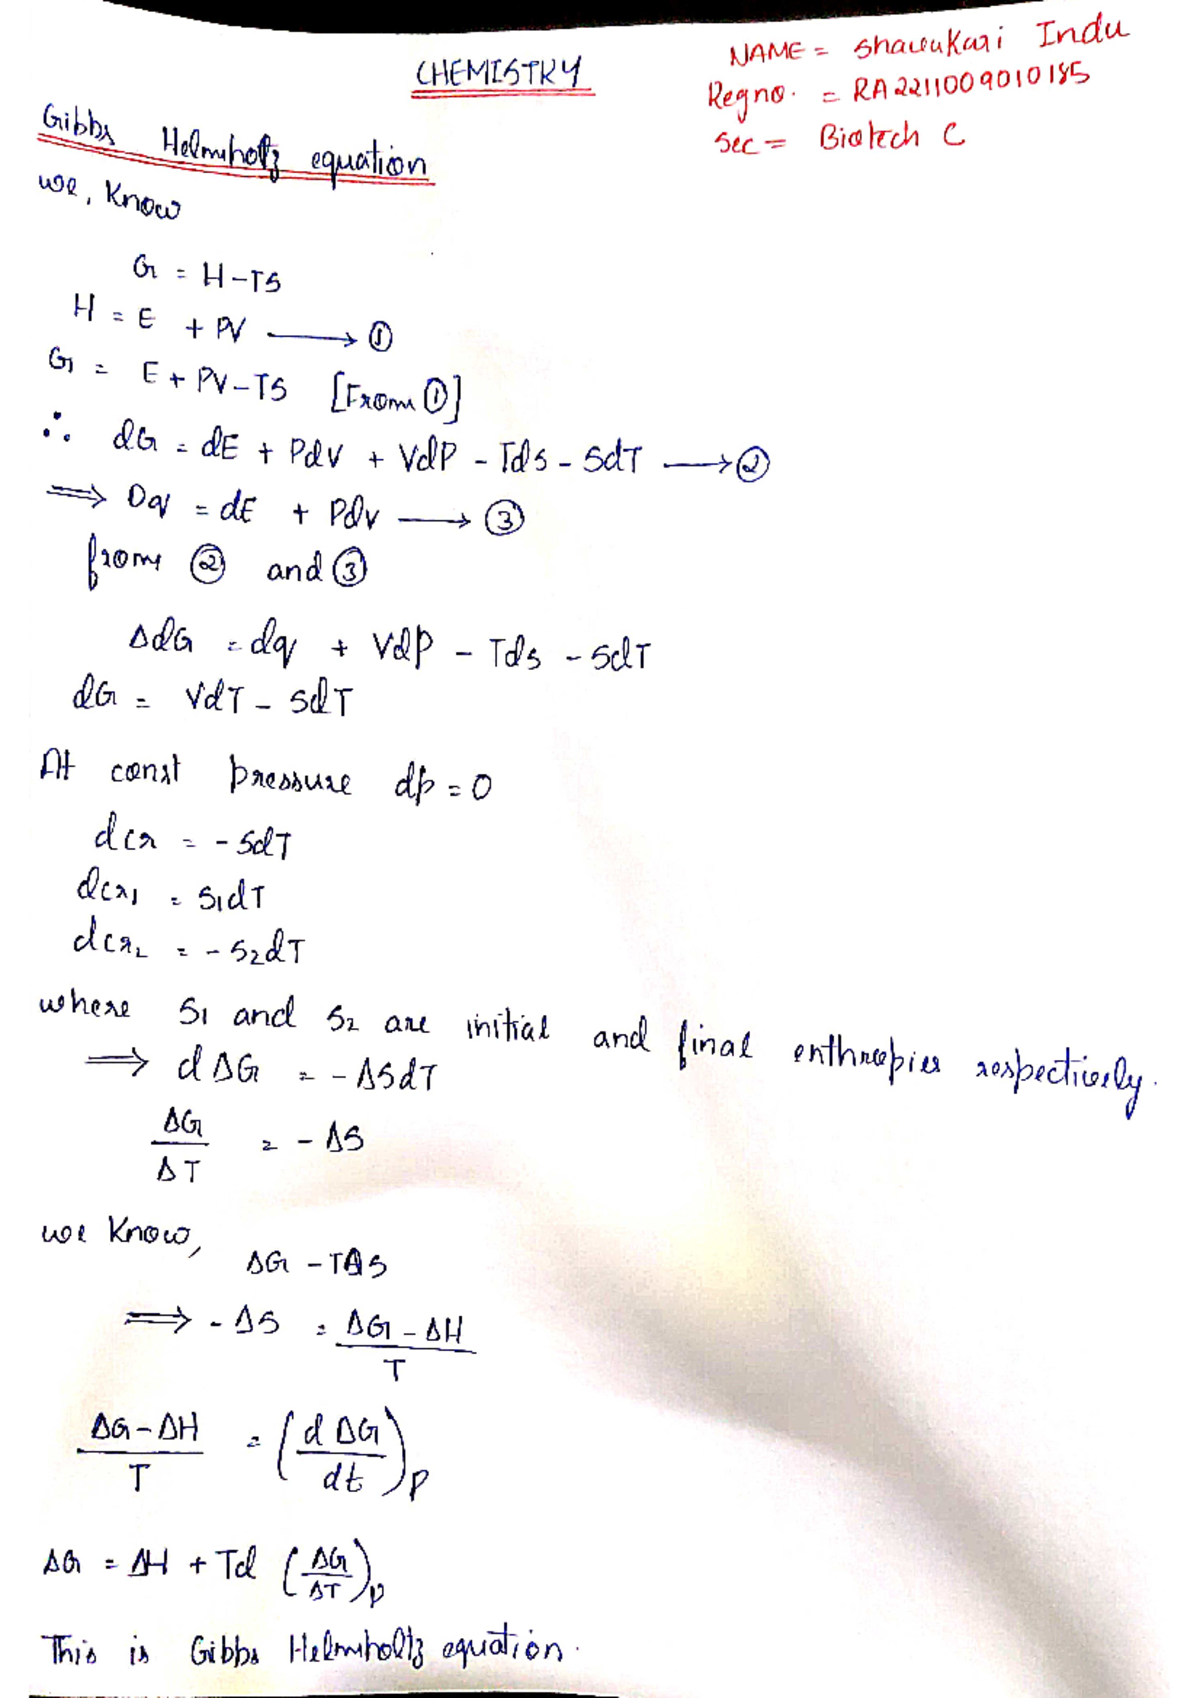 CHEMISTRY
NAME = Shawukari Indu
Regno. = RA2211009010185
Sec = Biotech C
Gibbs Helmholtz equation
we, Know
G = H-TS
H = E + PV ⟶ ①
G = E + PV - TS [From ①]
∴ dG = dE + PdV + VdP - Tds - SdT ⟶ ②
⟹ Dq = dE + Pdv ⟶ ③
from ② and ③
ΔdG = dq + VdP - Tds - SdT
dG = VdT - SdT
At const pressure dp = 0
dG = - SdT
dG1 = S1dT
dG2 = - S2dT
where S1 and S2 are initial and final enthropies respectively.
⟹ dΔG = - ΔSdT
ΔG/ΔT = - ΔS
we Know,
ΔG - TΔS
⟹ - ΔS = ΔG - ΔH / T
ΔG - ΔH / T = (dΔG/dt)p
ΔG = ΔH + Td (ΔG/ΔT)p
This is Gibbs Helmholtz equation.